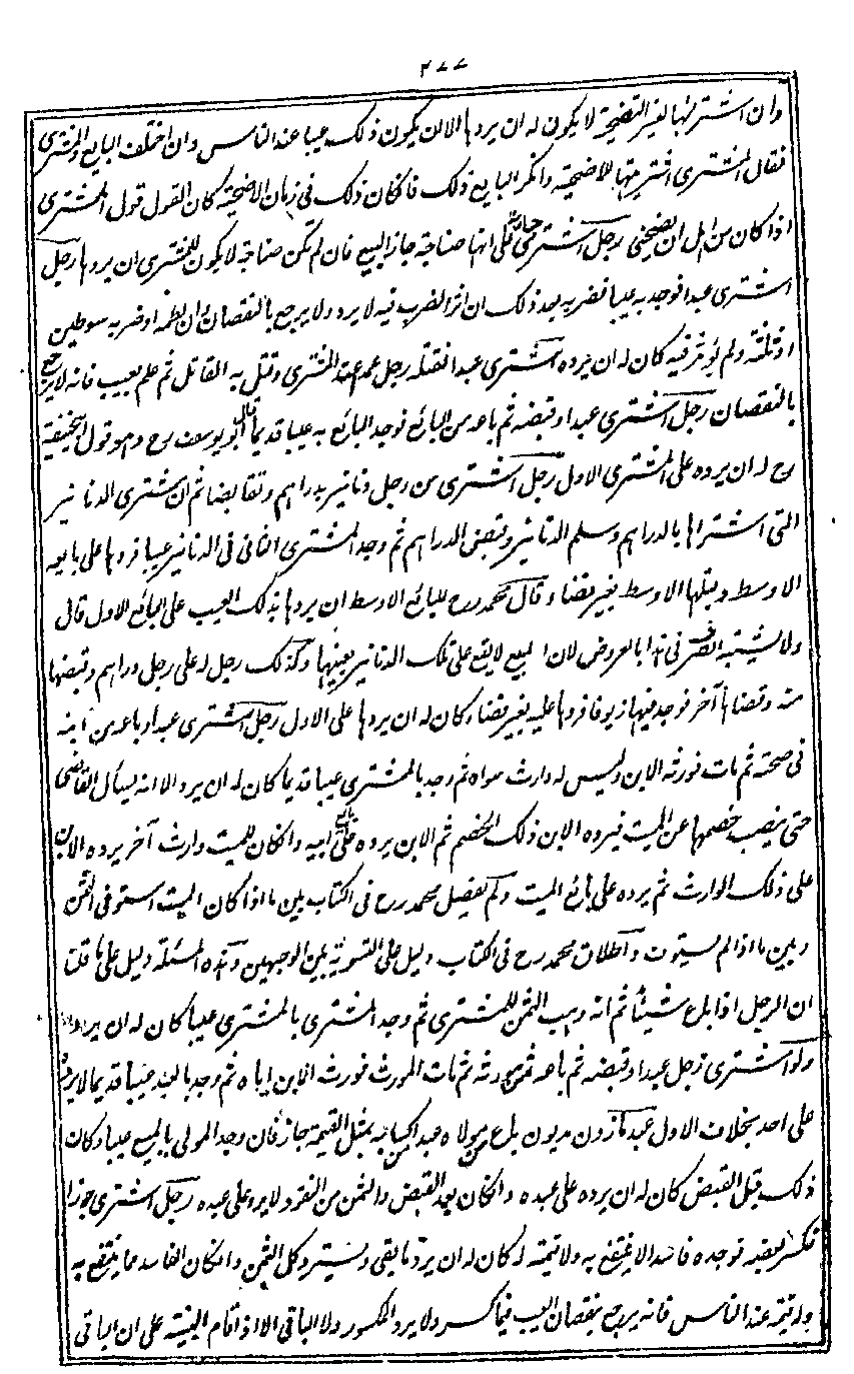 ٢٧٧
وان اشتريتها لغير التضحية لا يكون له ان يردها الا ان يكون ذلك عيبا عند الناس وان اختلف البايع والمشترى
فقال المشترى اشتريتها للاضحية وانكر البايع ذلك فان كان ذلك فى زمان الاضحية كان القول قول المشترى
اذا كان من اهل ان يضحى رجل اشترى جارية على انها صناجة جاز البيع فان لم تكن صناجة لا يكون للمشترى ان يردها رجل
اشترى عبدا فوجد به عيبا فضربه بعد ذلك ان اثر الضرب فيه لا يرد ولا يرجع بالنقصان وان لطمه او ضربه سوطين
او ثلثة ولم يؤثر فيه كان له ان يرده اشترى عبدا فقتله رجل عمدا عند المشترى وقتل به القاتل ثم علم بعيب فانه لا يرجع
بالنقصان رجل اشترى عبدا وقبضه ثم باعه من البائع فوجد البائع به عيبا قديما قال ابو يوسف رح وهو قول ابيحنيفة
رح له ان يرده على المشترى الاول رجل اشترى من رجل دنانير بدراهم وتقابضا ثم ان مشترى الدنانير
التى اشتراها بالدراهم وسلم الدنانير وقبض الدراهم ثم وجد المشترى الثانى فى الدنانير عيبا فردها على بايعه
الاوسط وقبلها الاوسط بغير قضاء قال محمد رح للبائع الاوسط ان يردها بذلك العيب على البائع الاول قال
ولا يشبه الصرف فى هذا بالعروض لان البيع لا يقع على تلك الدنانير بعينها وكذلك رجل له على رجل دراهم وقبضها
منه وقضاها آخر فوجد فيها زيوفا فردها عليه بغير قضاء كان له ان يردها على الاول رجل اشترى عبدا وباعه من ابنه
فى صحته ثم مات فورثه الابن وليس له وارث سواه ثم وجد بالمشترى عيبا قديما كان له ان يرد الا انه يسأل القاضى
حتى ينصب خصما عن الميت فيرده الابن ذلك الخصم ثم الابن يرده على بائع ابيه وان كان للميت وارث آخر يرده الابن
على ذلك الوارث ثم يرده على بائع الميت ولم يفصل محمد رح فى الكتاب بين ما اذا كان الميت استوفى الثمن
وبين ما اذا لم يستوف واطلاق محمد رح فى الكتاب دليل على التسوية بين الوجهين وهذه المسئلة دليل على ما قلنا
ان الرجل اذا باع شيئا ثم انه وهب الثمن للمشترى ثم وجد المشترى بالمشترى عيبا كان له ان يرد
ولو اشترى رجل عبدا وقبضه ثم باعه من مورثه ثم مات المورث فورث الابن اياه ثم وجد بالعبد عيبا قديما لا يرده
على احد بخلاف الاول عبد مأذون مديون باع من مولاه عبدا من اكسابه بمثل القيمة جاز فان وجد المولى بالمبيع عيبا وكان
ذلك قبل القبض كان له ان يرده على عبده وان كان بعد القبض والثمن من النقود لا يرد على عبده رجل اشترى جوزا
فكسر بعضه فوجده فاسدا لا ينتفع به ولا قيمة له كان له ان يرد ما بقى ويسترد كل الثمن وان كان الفاسد مما ينتفع به
وله قيمة عند الناس فانه يرجع بنقصان العيب فيما كسر ولا يرد المكسور ولا الباقى الا اذا اقام البينة على ان الباقى